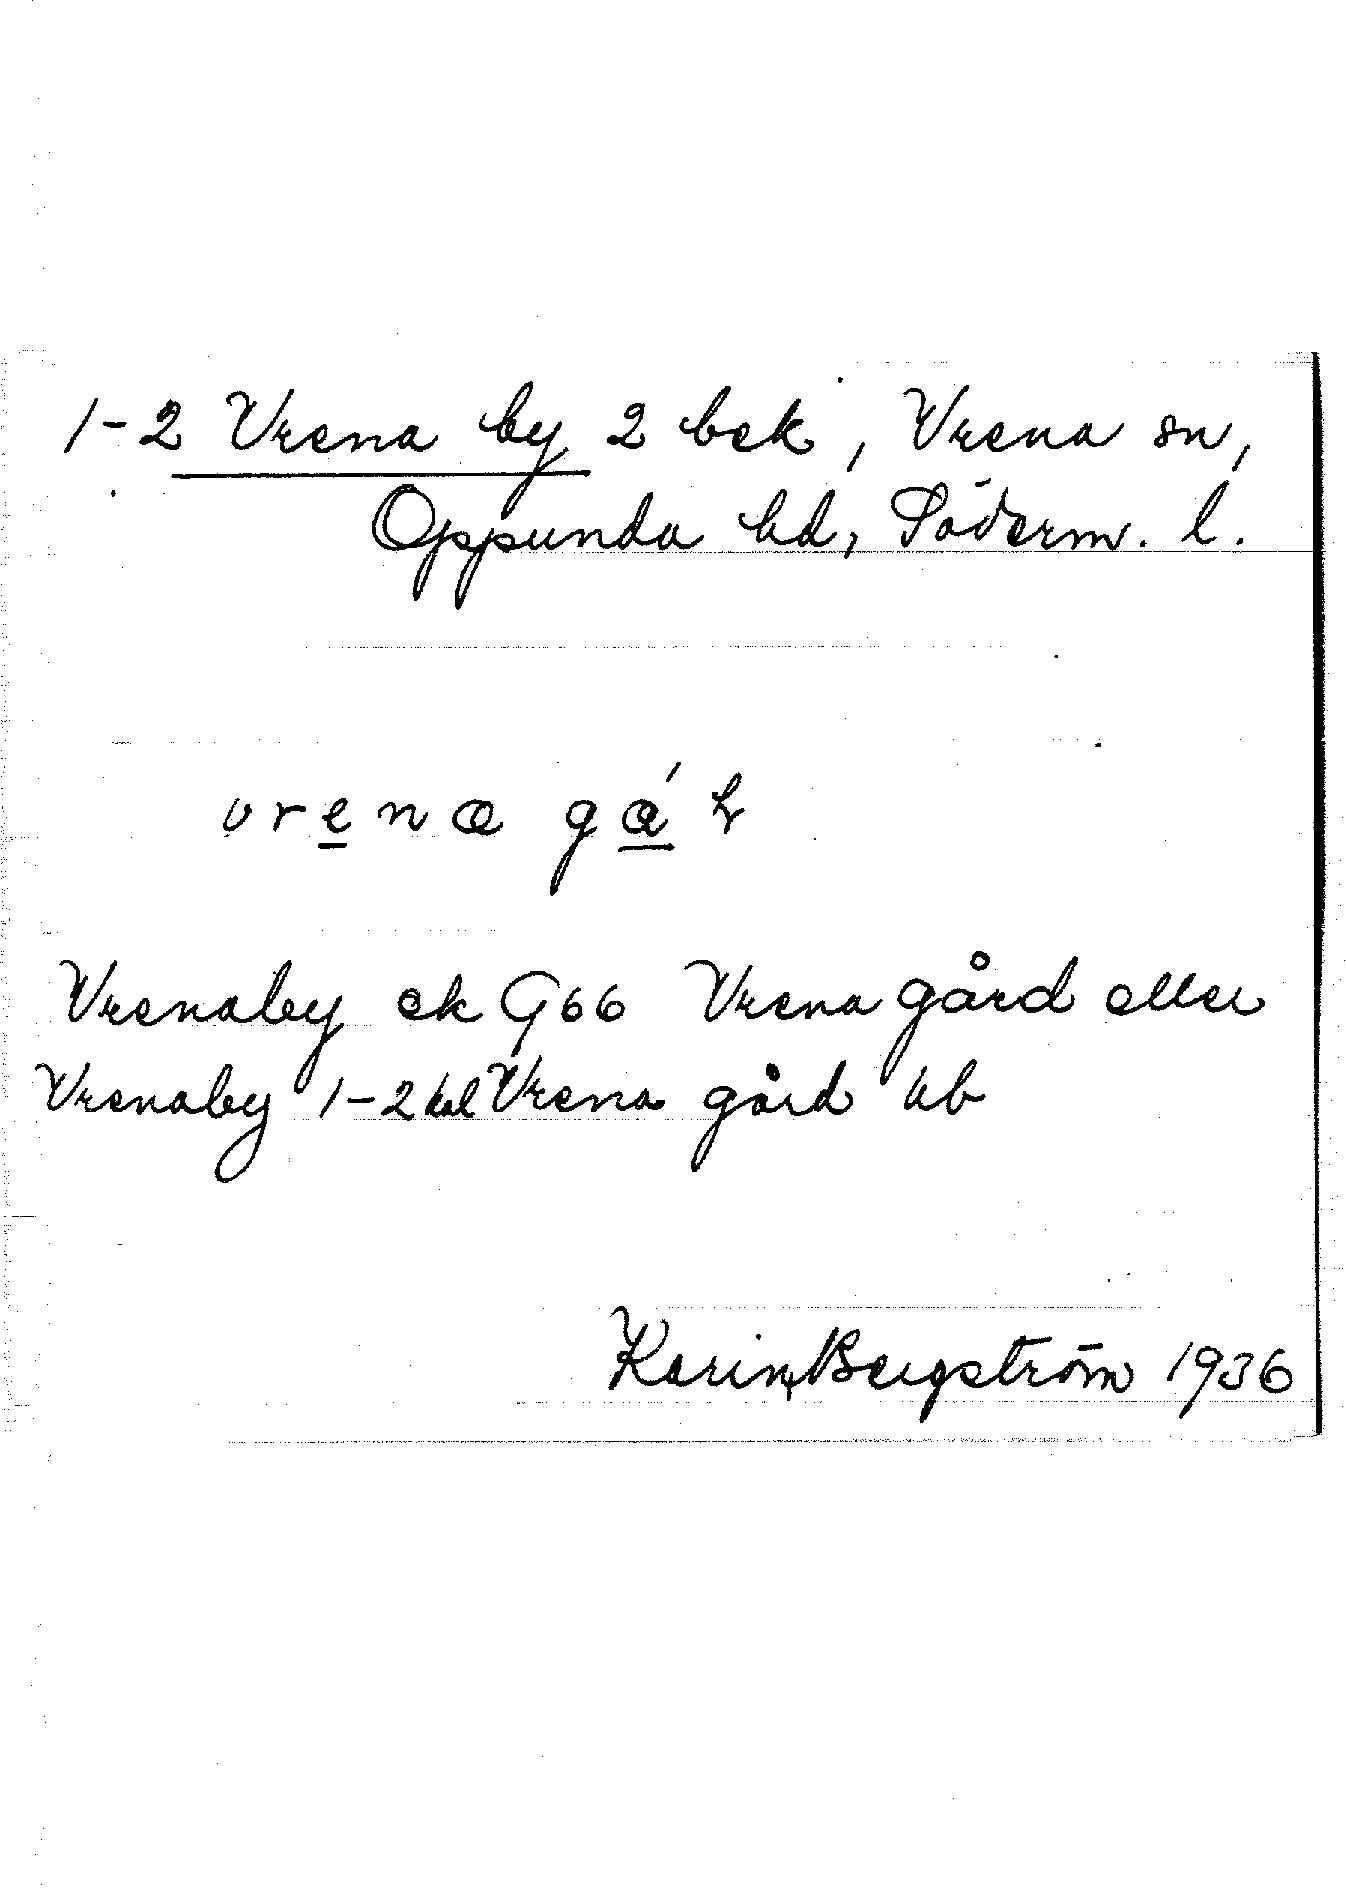 1-2 Vrena by 2 bek, Vrena sn,
Oppunda hd, Söderm. l.
vrena gá
Vrenaby ek G66 Vrena gård eller
Vrenaby 1-2 Vrena gård hb
Karin Bergström 1936